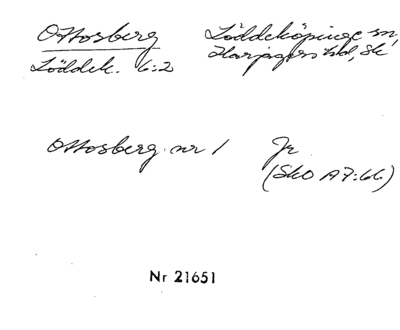 Ottosberg Löddeköpinge sn,
Löddek. 6:2 Harjagers hd, Sk
Ottosberg nr 1 Jr
(SkO A7:66)
Nr 21651